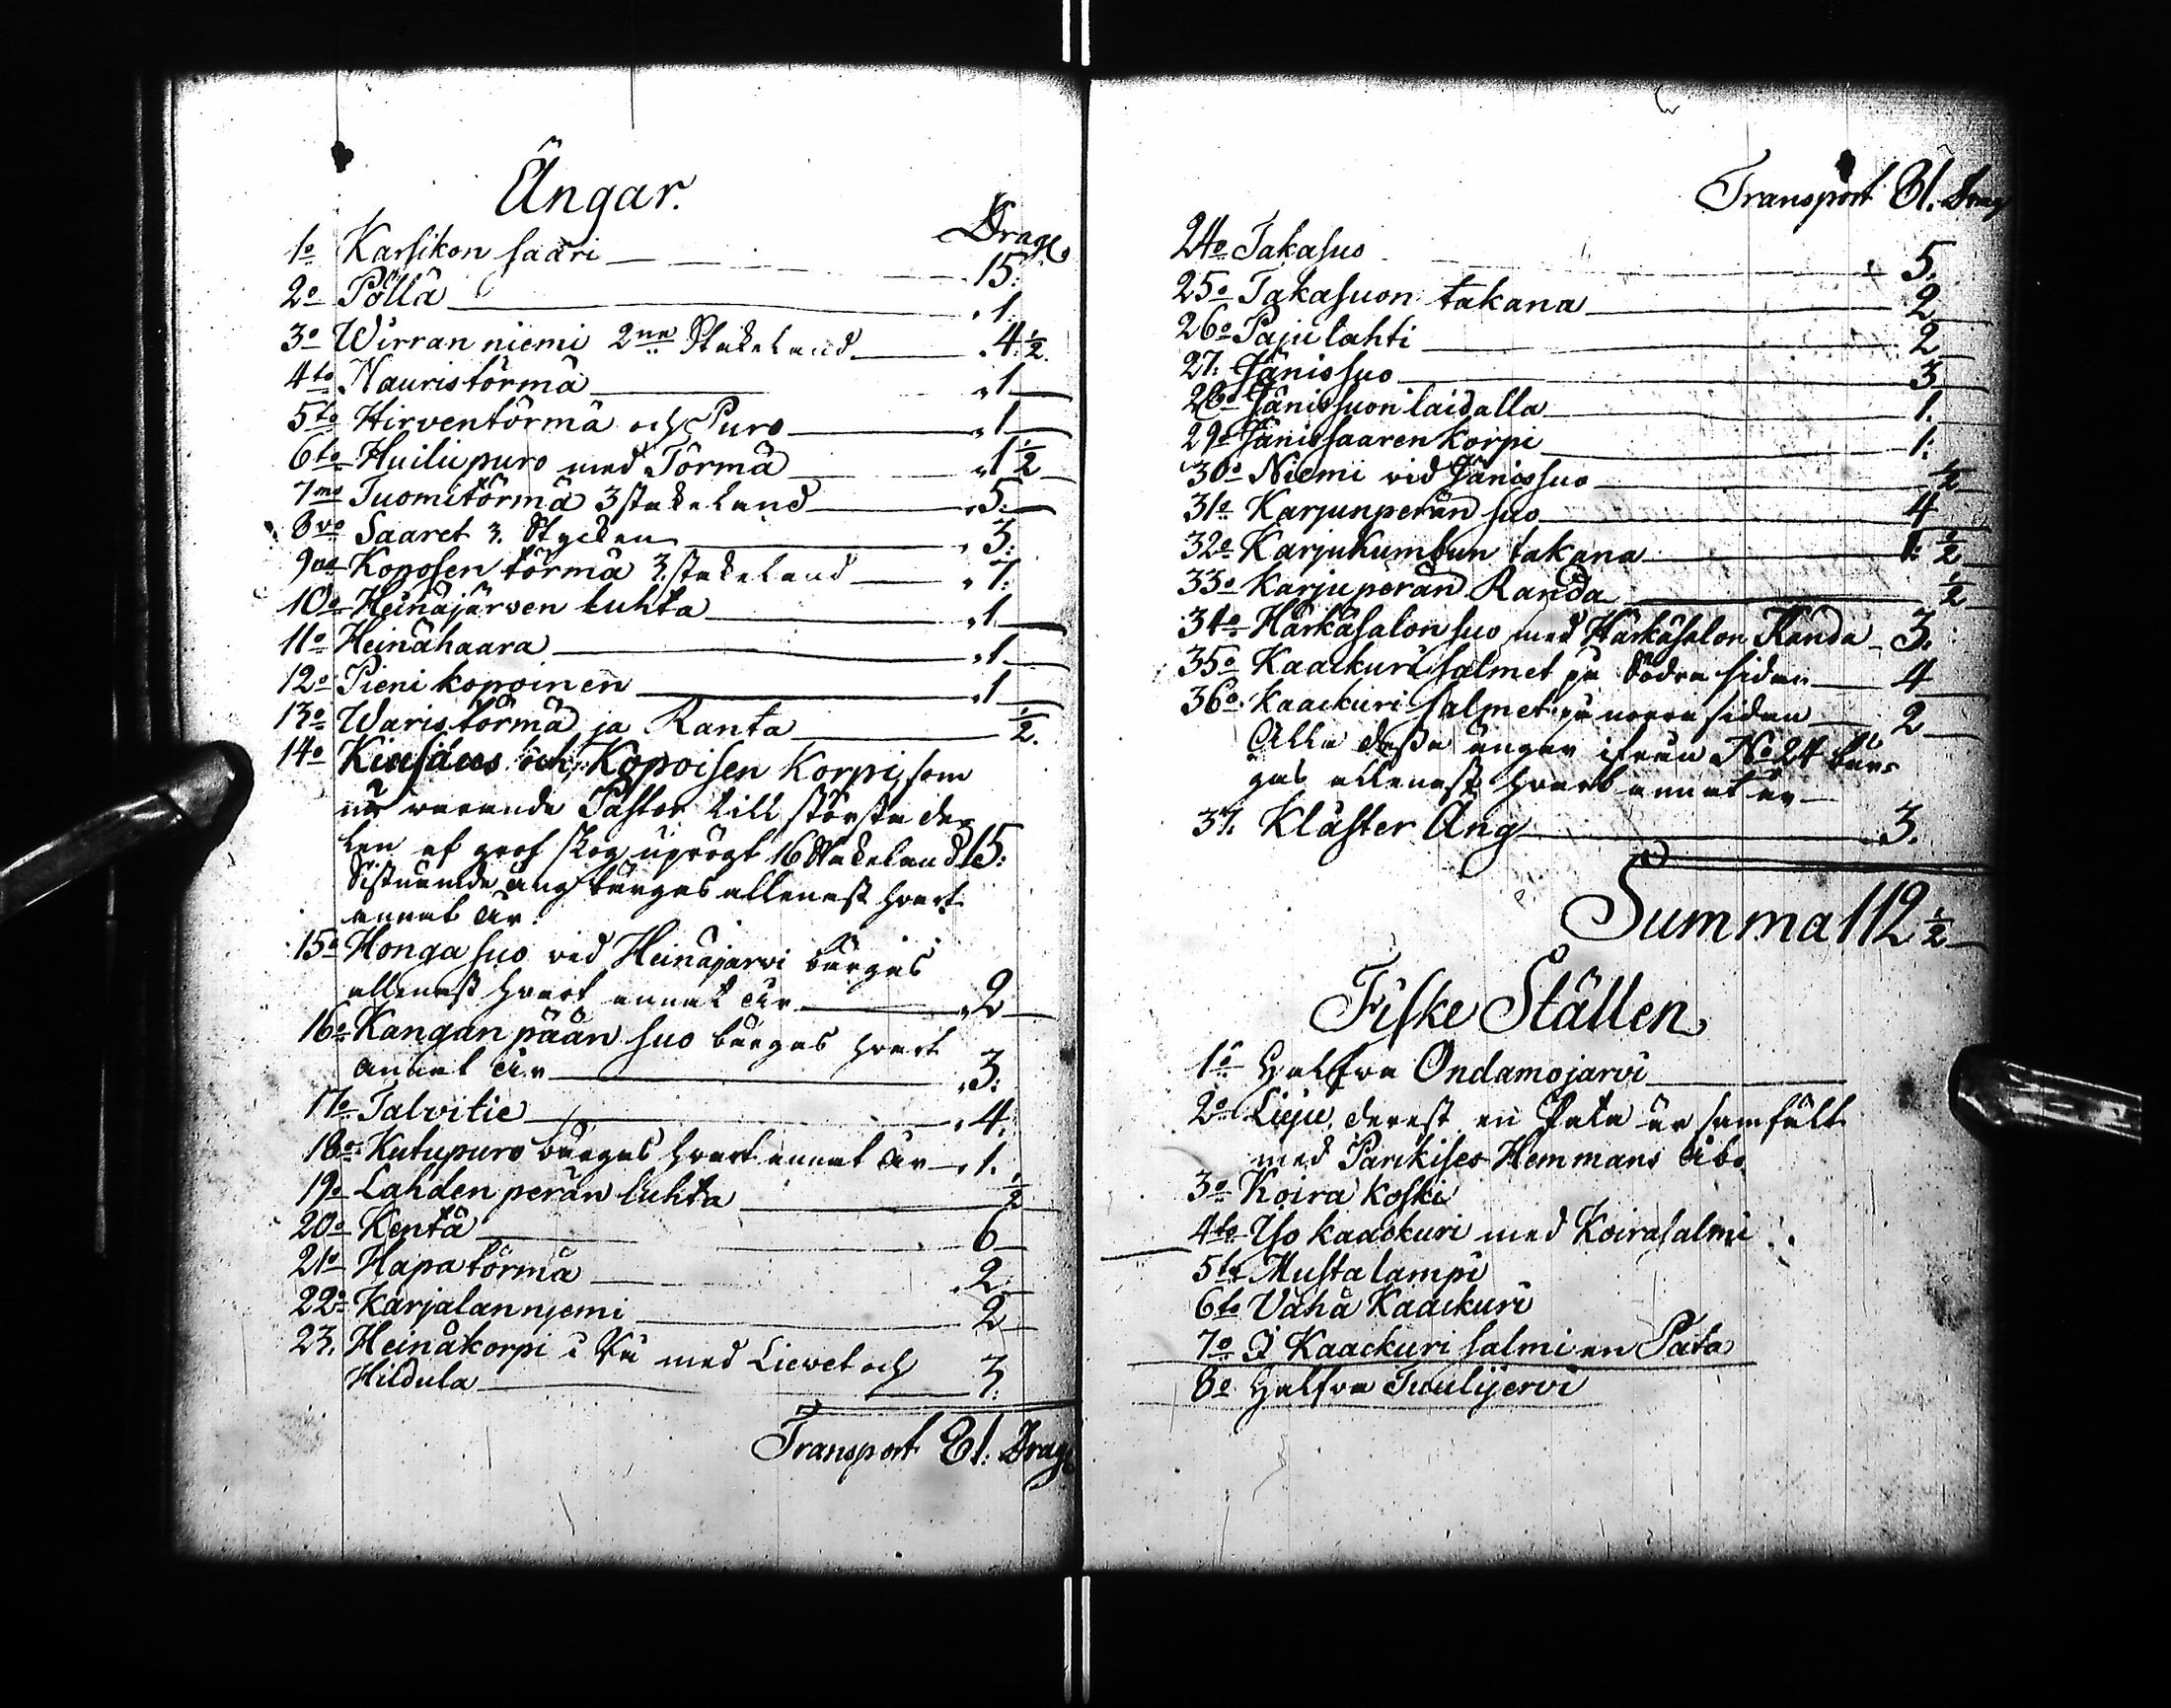 Ängar.
Dragl
1o Karsikon saari 15:
2o Pöllä 1:
3o Wirran niemi 2ne Stakeland 4 1/2.
4to Nauristörmä 1
5to Hirventörmä och Puro 1
6to Huilupuro med Törmä 1 1/2
7mo Tuomitörmä 3 stakeland 5:
8vo Saaret 3. Stycken 3:
9no Koposen törmä 3. stakeland 7:
10o Heinäjärwen luhta 1
11o Heinähaara 1
12o Pieni kopoinen 1
13o Waristörmä ja Ranta 1/2.
14o Kiusaus och Kopoisen Korpi, som
nu warande Pastor till största de-
len af grof skog uprögt 16 Stakeland 15:
Sistnämde äng bärgas allenast hvart
annat år.
15o Honga suo vid Heinäjarvi bärgas
allenast hvart annat år 2
16o Kangan pään suo bärgas hvart
annat år 3:
17o Talvitie 4:
18o Kutupuro bärgas hvart annat år 1.
19o Lahden perän luhta 1/2
20o Kentä 6
21o Hapatörmä 2
22o Karjalanniemi 2
23. Heinäkorpi i Ku med Liewet och
Hildula 3:
Transport 81: Dragl
Transport 81. Drag
24o Takasuo 5:
25o Takasuon takana 2
26o Paju lahti 2
27. Jänissuo 3
28o Jänissuon laidalla 1.
29o Jänissaaren korpi 1:
30o Niemi vid Jänissuo 1/2
31o Karjunperän suo 4
32o Karjukummun takana 1: 1/2
33o Karjuperän Randa 1/2
34o Härkäsalon suo med Härkäsalon Randa 3.
35o Kaackuri salmet på Södra sidan 4
36o Kaackuri salmet på norra sidan 2
Alla dessa ängar ifrån No 24 bär-
gas allenast hvart annat år
37. Kläster Äng 3.
Summa 112 1/2
Fiske Ställen
1o Halfva Ondamojarvi
2o Liyu, derest en Pata är samfält
med Parckises Hemmans Åbo
3o Koira koski
4to Yso kaackuri med Koirasalmi
5to Musta lampi
6to Vähä Kaackuri
7o I Kaackuri salmi en Pata
8o Halfva Tuulijervi